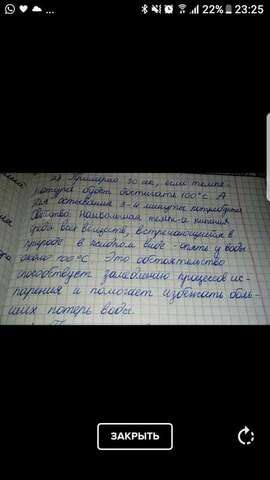 22% 23:25
2) Примерно 30 сек, если темпе-
ратура будет достигать 100°С. А
для остывания 3-4 минуты потребуется
Свойство: Наибольшая темп-а кипения
среди всех веществ, встречающихся в
природе в жидком виде - опять у воды
около 100°С. Это обстоятельство
способствует замедлению процессов ис-
парения и помогает избежать боль-
ших потерь воды.
ЗАКРЫТЬ